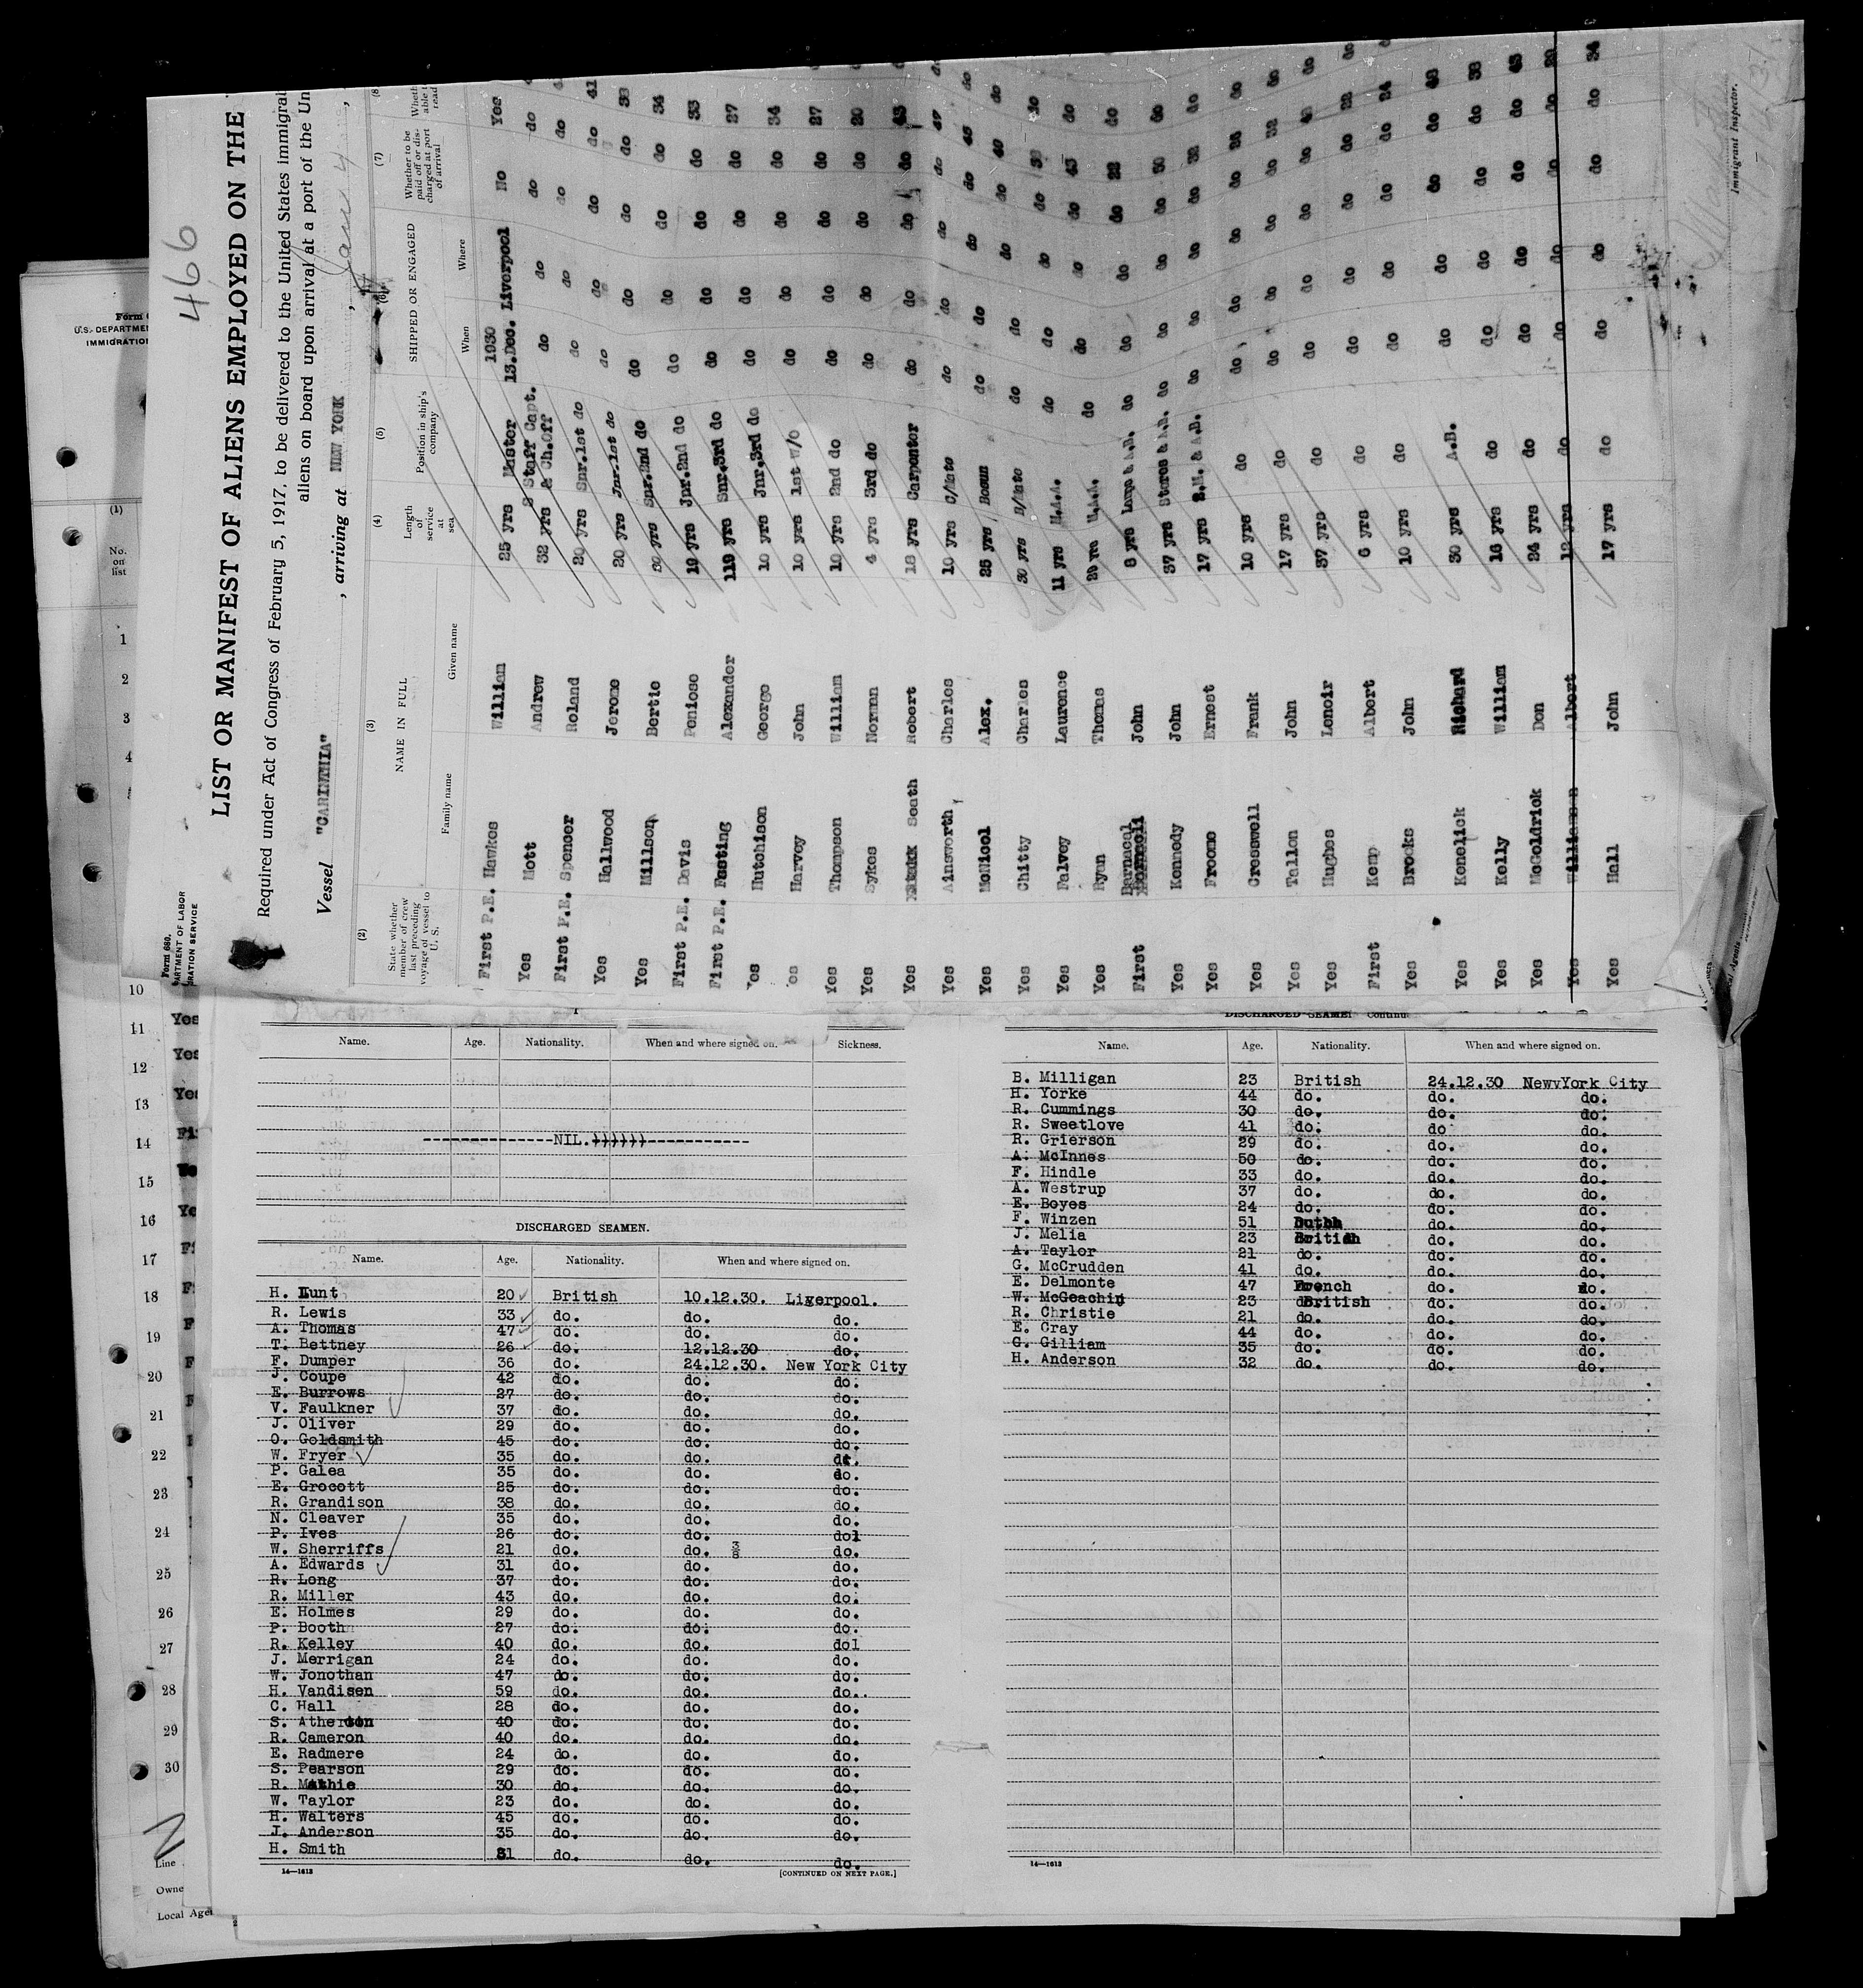 466
Form 680.
ARTMENT OF LABOR
GRATION SERVICE
LIST OR MANIFEST OF ALIENS EMPLOYED ON THE
Required under Act of Congress of February 5, 1917, to be delivered to the United States immigrat
aliens on board upon arrival at a port of the Un
Vessel "CARINTHIA" , arriving at NEW YORK , Jan 4 ,
(2) (3) (4) (5) (6) (7) (8)
State whether member of crew last preceding voyage of vessel to U. S.
NAME IN FULL
Family name Given name
Length of service at sea
Position in ship's company
SHIPPED OR ENGAGED
When Where
Whether to be paid off or discharged at port of arrival
Wheth able t read
First P.E. Hawkes William 25 yrs Master 1930 13.Dec. Liverpool No Yes
Yes Mott Andrew 32 yrs Staff Capt. & Ch.Off do do do do
First P.E. Spencer Roland 20 yrs Snr.1st do do do do do
Yes Hallwood Jerome 20 yrs Jnr.1st do do do do do 41
Yes Millson Bertie 20 yrs Snr.2nd do do do do do 38
First P.E. Davis Peniose 19 yrs Jnr.2nd do do do do do 34
First P.E. Fasting Alexander 119 yrs Snr.3rd do do do do do 33
Yes Hutchison George 10 yrs Jnr.3rd do do do do do 27
Yes Harvey John 10 yrs 1st W/O do do do do 34
Yes Thompson William 10 yrs 2nd do do do do do 27
Yes Sykes Norman 4 yrs 3rd do do do do do 20
Yes Seath Robert 18 yrs Carpenter do do do do 43
Yes Ainsworth Charles 10 yrs C/Mate do do do do 47 do
Yes McNicol Alex. 25 yrs Bosun do do do do 45 do
Yes Chitty Charles 30 yrs B/Mate do do do do 49 do
Yes Falvey Laurence 11 yrs M.A.A. do do do do do
Yes Ryan Thomas 29 yrs M.A.A. do do do do 43 do
First Barnacal John 8 yrs Lamps & A.B. do do do do 22 do
Yes Kennedy John 37 yrs Stores & A.B. do do do do do
Yes Froome Ernest 17 yrs B.M. & A.B. do do do do 32 do
Yes Cresswell Frank 10 yrs do do do do do do
Yes Tallon John 17 yrs do do do do do 32 do
Yes Hughes Lenoir 37 yrs do do do do do do
First Kemp Albert 6 yrs do do do do do 22 do
Yes Brooks John 10 yrs do do do do do 24 do
Yes Kenelick Richard 30 yrs A.B. do do do do
Yes Kelly William 16 yrs do do do do do 38
Yes McGoldrick Don 24 yrs do do do do do 43
Yes Williamson Albert 12 yrs do do do do do
Yes Hall John 17 yrs do do do do do 34
Immigrant Inspector.
Form
U.S. DEPARTMEN
IMMIGRATION
(1)
No. on list
1
2
3
4
10
11 Yes
12 Yes
13 Yes
14
15
16 Ye
17
18
19
20
21
22
23
24
25
26
27
28
29
30
Line
Owne
Local Agen
Name. Age. Nationality. When and where signed on. Sickness.
NIL.
DISCHARGED SEAMEN.
Name. Age. Nationality. When and where signed on.
H. Hunt 20 British 10.12.30. Ligerpool.
R. Lewis 33 do. do. do.
A. Thomas 47 do. do. do.
T. Bettney 26 do. 12.12.30 do.
F. Dumper 36 do. 24.12.30. New York City
J. Coupe 42 do. do. do.
E. Burrows 27 do. do. do.
V. Faulkner 37 do. do. do.
J. Oliver 29 do. do. do.
O. Goldsmith 45 do. do. do.
W. Fryer 35 do. do. do.
P. Galea 35 do. do. do.
E. Grocott 25 do. do. do.
R. Grandison 38 do. do. do.
N. Cleaver 35 do. do. do.
P. Ives 26 do. do. dol
W. Sherriffs 21 do. do. do.
A. Edwards 31 do. do. do.
R. Long 37 do. do. do.
R. Miller 43 do. do. do.
E. Holmes 29 do. do. do.
P. Booth 27 do. do. do.
R. Kelley 40 do. do. dol
J. Merrigan 24 do. do. do.
W. Jonothan 47 do. do. do.
H. Vandisen 59 do. do. do..
C. Hall 28 do. do. do.
S. Atherton 40 do. do. do.
R. Cameron 40 do. do. do.
E. Radmere 24 do. do. do.
S. Pearson 29 do. do. do.
R. Mathie 30 do. do. do.
W. Taylor 23 do. do. do.
H. Walters 45 do. do. do.
J. Anderson 35 do. do. do.
H. Smith 31 do. do. do.
14—1613 [CONTINUED ON NEXT PAGE.]
DISCHARGED SEAMEN Continu
Name. Age. Nationality. When and where signed on.
B. Milligan 23 British 24.12.30 NewvYork City
H. Yorke 44 do. do. do.
R. Cummings 30 do. do. do.
R. Sweetlove 41 do. do. do.
R. Grierson 29 do. do. do.
A. McInnes 50 do. do. do.
F. Hindle 33 do. do. do.
A. Westrup 37 do. do. do.
E. Boyes 24 do. do. do.
F. Winzen 51 Dutch do. do.
J. Melia 23 British do. do.
A. Taylor 21 do. do. do.
G. McCrudden 41 do. do. do.
E. Delmonte 47 French do. do.
W. McGeachin 23 British do. do.
R. Christie 21 do. do. do.
E. Cray 44 do. do. do.
G. Gilliam 35 do. do. do.
H. Anderson 32 do. do. do.
14—1613